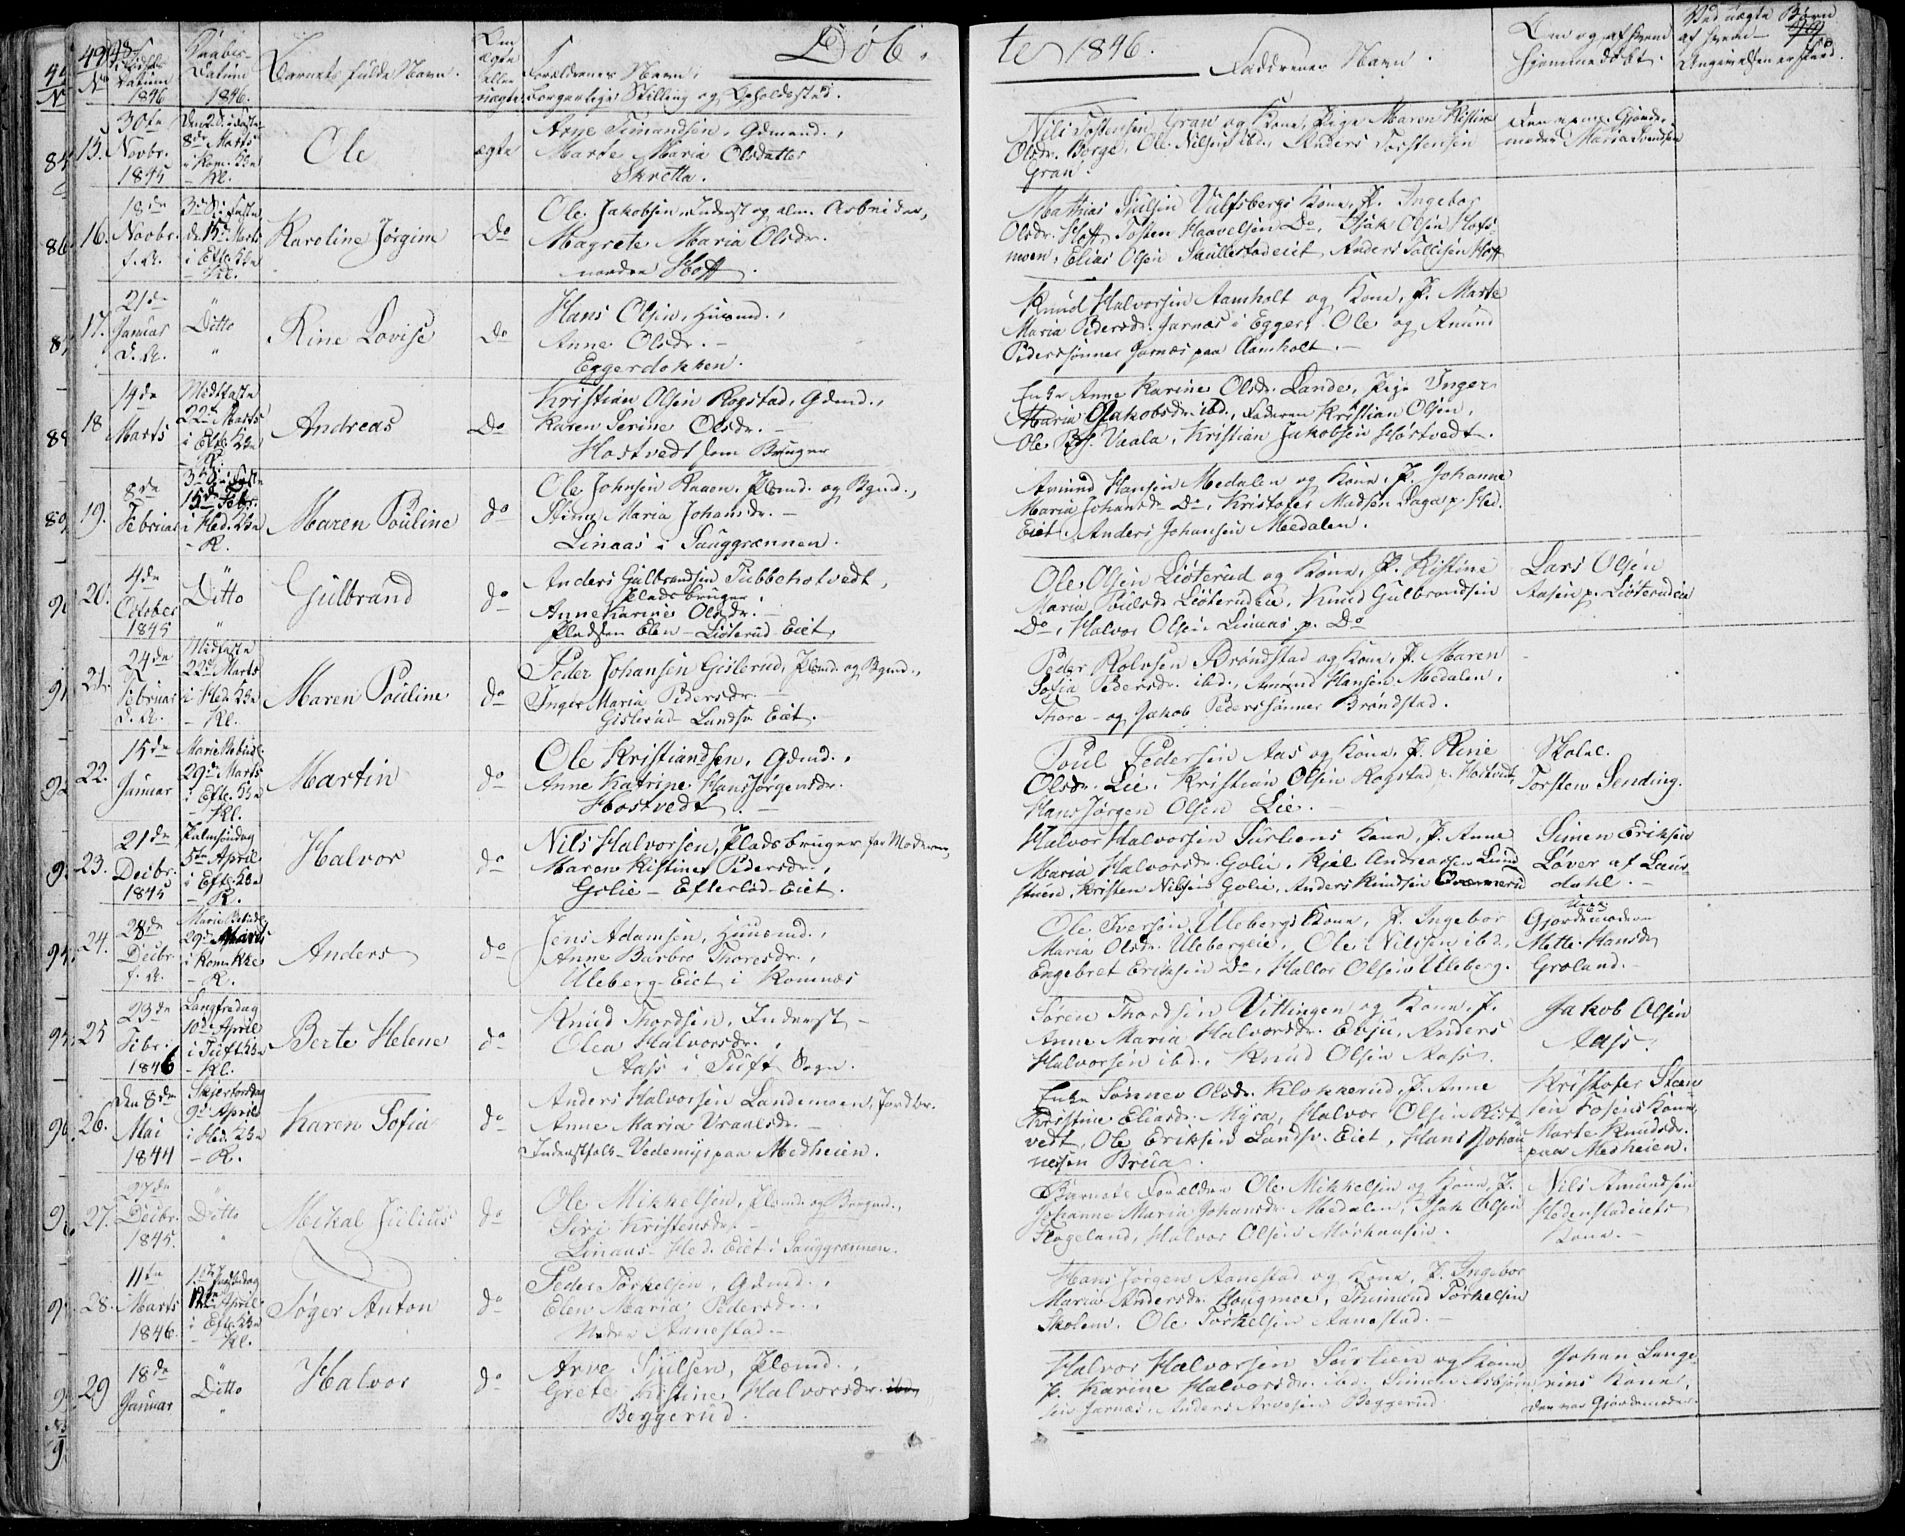 Døb
te 1846.
Daabs-
Datum
1846.
Barnets fulde Navn.
Om
ægte
eller
uægte
Forældrenes Navn,
borgerlige Stilling og Opholdssted.
Faddrenes Navn.
Om og af hvem
hjemmedøbt.
Ved uægte Børn
af hvem
Angivelsen er skeed.
15.
30te
Novbr.
1845
8de Marts
Kl.
Ole
ægte
Arne Simundsen, Gdmand.,
Marte Maria Olsdatter
Skretta.
Nils Tostensen Gran og Kone, Pige Maren Kistine
Olsdr. Borge, Ole Nilsen ibd., Anders Torstensen
Gran.
16.
18de
Novbr.
f. A.
15de Marts
i Eftl. Kke
Kl.
Karoline Jørgine
Do
Ole Jakobsen, Inderst og alm. Arbeider,
Magrete Maria Olsdr.
nordre Hoff.
Mathias Sjulsen Ulfsbergs Kone, P. Ingebor
Olsdr. Hoff, Tosten Haavelsen Do, Isak Olsen Hofs-
moen, Elias Olsen Skullestadeiet, Anders Tollefsen Hoff
17.
21de
Januar
d. A.
Ditto
Rine Lovise
Do
Hans Olsen, Huusmd.,
Anne Olsdr.
Eggerdokken.
Knud Halvorsen Aamholt og Kone, P. Marte
Maria Pedersdr. Jarnæs i Egger, Ole og Amund
Pederssønner Jarnæs paa Aamholt.
18
14de
Marts
Midfaste
22de Marts
i Eftl. Kke
Andreas
Do
Kristian Olsen Rogstad, Gdmd.,
Karen Serine Olsdr.
Hostvedt som Bruger
Enke Anne Karine Olsdr. Lande, Pige Inger
Maria Jakobsdr. ibd., Faderen Kristian Olsen,
Ole Vaala, Kristian Jakobsen Hostvedt.
19.
8de
Februar
15de Febr.
i Hed. Kke
K.
Maren Pouline
do
Ole Johnsen Raaen, Plsmd. og Bgmd.,
Stina Maria Johansdr.
Linaas i Sauggrænnen.
Amund Hansen Medalen og Kone, P. Johanne
Maria Johansdr. Do, Kristofer Madsen Daga p. Hed.
Eiet, Anders Johansen Medalen.
20.
4de
October
1845
Ditto
Gulbrand
do
Anders Gulbrandsen Tubbeholtvedt,
Pladsbruger,
Anne Karine Olsdr.
Pladsen Elen Liøterud Eiet,
Ole Olsen Liøterud og Kone, P. Kistine
Maria Poulsdr. Liøterudeie, Knud Gulbrandsen
Do, Halvor Olsen Linaas p. Do
Lars Olsen
Aasen p. Liøterudeie
21.
24de
Februar
d. A.
Midfaste
22de Marts
i Hed. Kke
Kl.
Maren Pouline
do
Peder Johansen Gislerud, Plsmd. og Bgmd.,
Inger Maria Pedersdr.
Gislerud Landsv. Eiet.
Peder Rolvsen Brøndstad og Kone, P. Maren
Sofia Pedersdr. ibid., Amund Hansen Medalen,
Thore og Jakob Pederssønner Brøndstad.
22.
15de
Januar
Marie Bebud.
29de Marts
i Eftl. Kke
Kl.
Martin
do
Ole Kristiandsen, Gdmd.,
Anne Katrine Hansjørgensdr.
Hostvedt
Poul Pedersen Aas og Kone, P. Rine
Olsdr. Lie, Kristian Olsen Rogstad p. Hostvedt,
Hans Jørgen Olsen Lie.
Skolel.
Torsten Sending.
23.
21de
Decbr.
1845
Palmesøndag
5te April
i Eftl. Kke
K.
Halvor
do
Nils Halvorsen, Pladsbruger for Moderen,
Maren Kistine Pedersdr.,
Golie Efterlød-Eiet.
Halvor Halvorsen Surliens Kone, P. Anne
Maria Halvorsdr. Golie, Kjel Andreassen Lund
stuen, Kristen Nilsen Golie, Anders Knudsen
Simen Eriksen
Løver af Laur
dahl.
24.
28de
Decbr.
f. A.
Marie Bebud.
29de Marts
i Kom. Kke
K.
Anders
do
Jens Adamsen, Huusmd.,
Anne Barbro Thoresdr.,
Uleberg-Eiet i Komnæs
Ole Iversen Ulebergs Kone, P. Ingebor
Maria Olsdr. Ulebergeie, Ole Nilsen ibd.,
Engebret Eriksen Do, Hallor Olsen Uleberg.
Gjordemoderen
Mette Hansdr.
Grøland.
25
23de
Febr.
1846
Langfredag
10de April
i Tuft Kke
Kl.
Berte Helene
do
Knud Thordsen, Inderst
Olea Halvorsdr.,
Aass i Tuft Sogn.
Søren Thordsen Vittingen og Kone, P.
Anne Maria Halvorsdr. Evju, Anders
Halvorsen ibd., Knud Olsen Aass.
Jakob Olsen
Aass.
26.
den 8de
Mai
1844
Skjertorsdag
9de April
i Hed. Kke
K.
Karen Sofia
do
Anders Halvorsen Landemoen, Jordbr.
Anne Maria Vraalsdr.
Inderstfolk Vedemyr paa Medheien.
Enke Sønnev Olsdr. Klokkerud, P. Anne
Kristine Eliasdr. Myra, Halvor Olsen Kist-
vedt, Ole Eriksen Landsv. Eiet, Hans Johan
nessen Brua.
Kristofer Steen
sen Fosens Kone
Marte Knudsdr.
paa Medheien.
27.
27de
Decbr.
1845.
Ditto
Mikal Julius
do
Ole Mikkelsen, Plsmd. og Bergmd.,
Siri Kristensdr.
Linaas Hed. Eiet i Sauggrænnen.
Barnets Forældre Ole Mikkelsen og Kone, P.
Johanne Maria Johansdr. Medalen, Isak Olsen
Flogeland, Halvor Olsen Mørkaasen.
Nils Amundsen
Hedenstadeiets
Kone.
28.
11te
Marts
1846.
12te April
i Eftl. Kke
Kl.
Tøger Anton
do
Peder Torkelsen, Gdmd.,
Elen Maria Pedersdr.,
Neder Aanestad.
Hans Jørgen Aanestad og Kone, P. Ingebor
Maria Andersdr. Haugmoe, Simund Torkelsen
Skolem. Ole Torkelsen Aanestad.
29
18de
Januar
Ditto
Halvor
do
Arve Sjulsen, Plsmd.,
Grete Kistine Halvorsdr.
Beggerud.
Halvor Halvorsen Surlien og Kone
P. Karine Halvorsdr. ibd. Simen Asbjørn
sen Jarnæs, Anders Arvesen Beggerud.
Johan Lange-
rins Kone,
den var Gjordemoder.